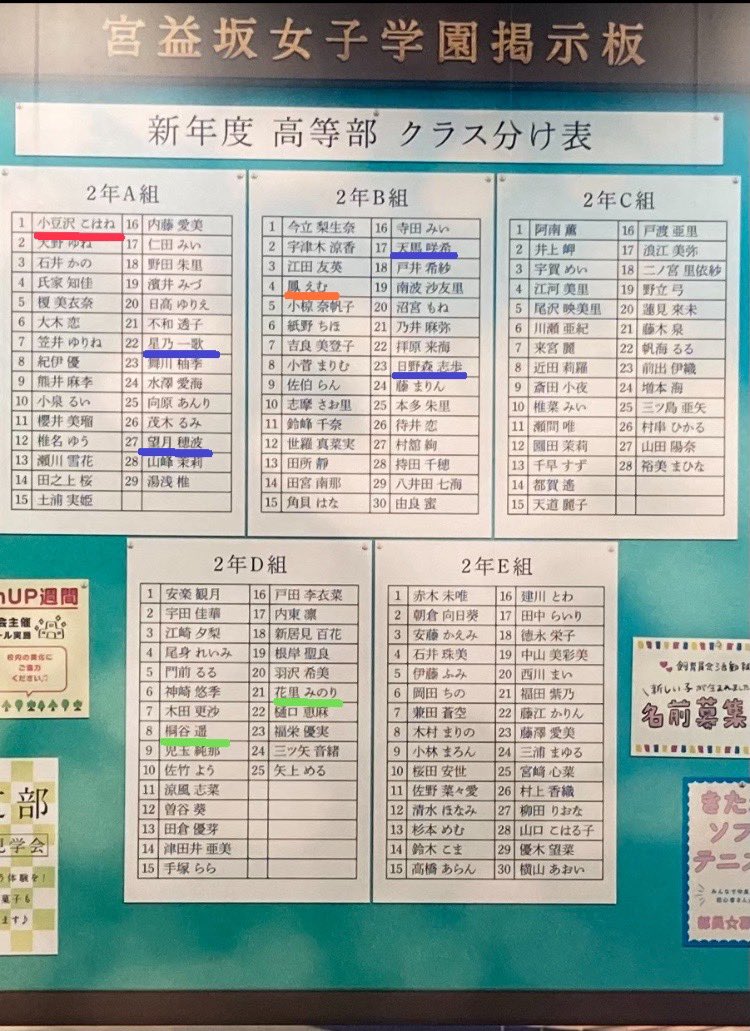 宮益坂女子学園掲示板
新年度 高等部 クラス分け表
2年A組
1 小豆沢 こはね
2 天野 ゆね
3 石井 かの
4 氏家 知佳
5 榎 美衣奈
6 大木 恋
7 笠井 ゆりね
8 紀伊 優
9 熊井 麻李
10 小泉 るい
11 櫻井 美瑠
12 椎名 ゆう
13 瀬川 雪花
14 田之上 桜
15 土浦 実姫
16 内藤 愛美
17 仁田 みい
18 野田 朱里
19 濱井 みづ
20 日高 ゆりえ
21 不和 透子
22 星乃 一歌
23 舞川 柚季
24 水澤 愛海
25 向原 あんり
26 茂木 るみ
27 望月 穂波
28 山峰 茉莉
29 湯浅 椎
2年B組
1 今立 梨生奈
2 宇津木 涼香
3 江田 友英
4 鳳 えむ
5 小椋 奈帆子
6 紙野 ちほ
7 吉良 美登子
8 小菅 まりむ
9 佐伯 らん
10 志摩 さお里
11 鈴峰 千奈
12 世羅 真菜実
13 田所 靜
14 田宮 南那
15 角貝 はな
16 寺田 みい
17 天馬 咲希
18 戸井 希紗
19 南波 沙友里
20 沼宮 もね
21 乃井 麻弥
22 拝原 来海
23 日野森 志歩
24 藤 まりん
25 本多 朱里
26 待井 恋
27 村舘 絢
28 持田 千穂
29 八井田 七海
30 由良 蜜
2年C組
1 阿南 薫
2 井上 岬
3 宇賀 めい
4 江河 美里
5 尾沢 映美里
6 川瀬 亜紀
7 来宮 麗
8 近田 莉羅
9 斎田 小夜
10 椎菜 みい
11 瀬間 唯
12 園田 茉莉
13 千早 すず
14 都賀 遙
15 天道 麗子
16 戸渡 亜里
17 浪江 美弥
18 二ノ宮 里依紗
19 野立 弓
20 蓮見 來未
21 藤木 泉
22 帆海 るる
23 前出 伊織
24 増本 海
25 三ツ島 亜矢
26 村串 ひかる
27 山田 陽奈
28 裕美 まひな
2年D組
1 安楽 観月
2 宇田 佳華
3 江崎 夕梨
4 尾身 れいみ
5 門前 るる
6 神崎 悠季
7 木田 更沙
8 桐谷 遥
9 児玉 純那
10 佐竹 よう
11 涼風 志菜
12 曽谷 葵
13 田倉 優芽
14 津田井 亜美
15 手塚 らら
16 戸田 李衣菜
17 内東 凛
18 新居見 百花
19 根岸 聖良
20 羽沢 希美
21 花里 みのり
22 樋口 恵麻
23 福栄 優実
24 三ツ矢 音緒
25 矢上 める
2年E組
1 赤木 未唯
2 朝倉 向日葵
3 安藤 かえみ
4 石井 珠美
5 伊藤 ふみ
6 岡田 ちの
7 兼田 蒼空
8 木村 まりの
9 小林 まろん
10 桜田 安世
11 佐野 菜々愛
12 清水 ほなみ
13 杉本 めむ
14 鈴木 こま
15 高橋 あらん
16 建川 とわ
17 田中 らいり
18 徳永 栄子
19 中山 美彩美
20 西川 まい
21 福田 紫乃
22 藤江 かりん
23 藤澤 愛美
24 三浦 まゆる
25 宮﨑 心菜
26 村上 香織
27 柳田 りおな
28 山口 こはる子
29 優木 望菜
30 横山 あおい
UP週間
会主催
ール実施
校内の美化に
ご協力
ください♫
部
見学会
う体験を!
菓子も
ます♪
飼育員記活動報
新しい子が生まれまし
名前募集
きた
ソフ
テニス
みんなで和気
初心者さん
部員☆募